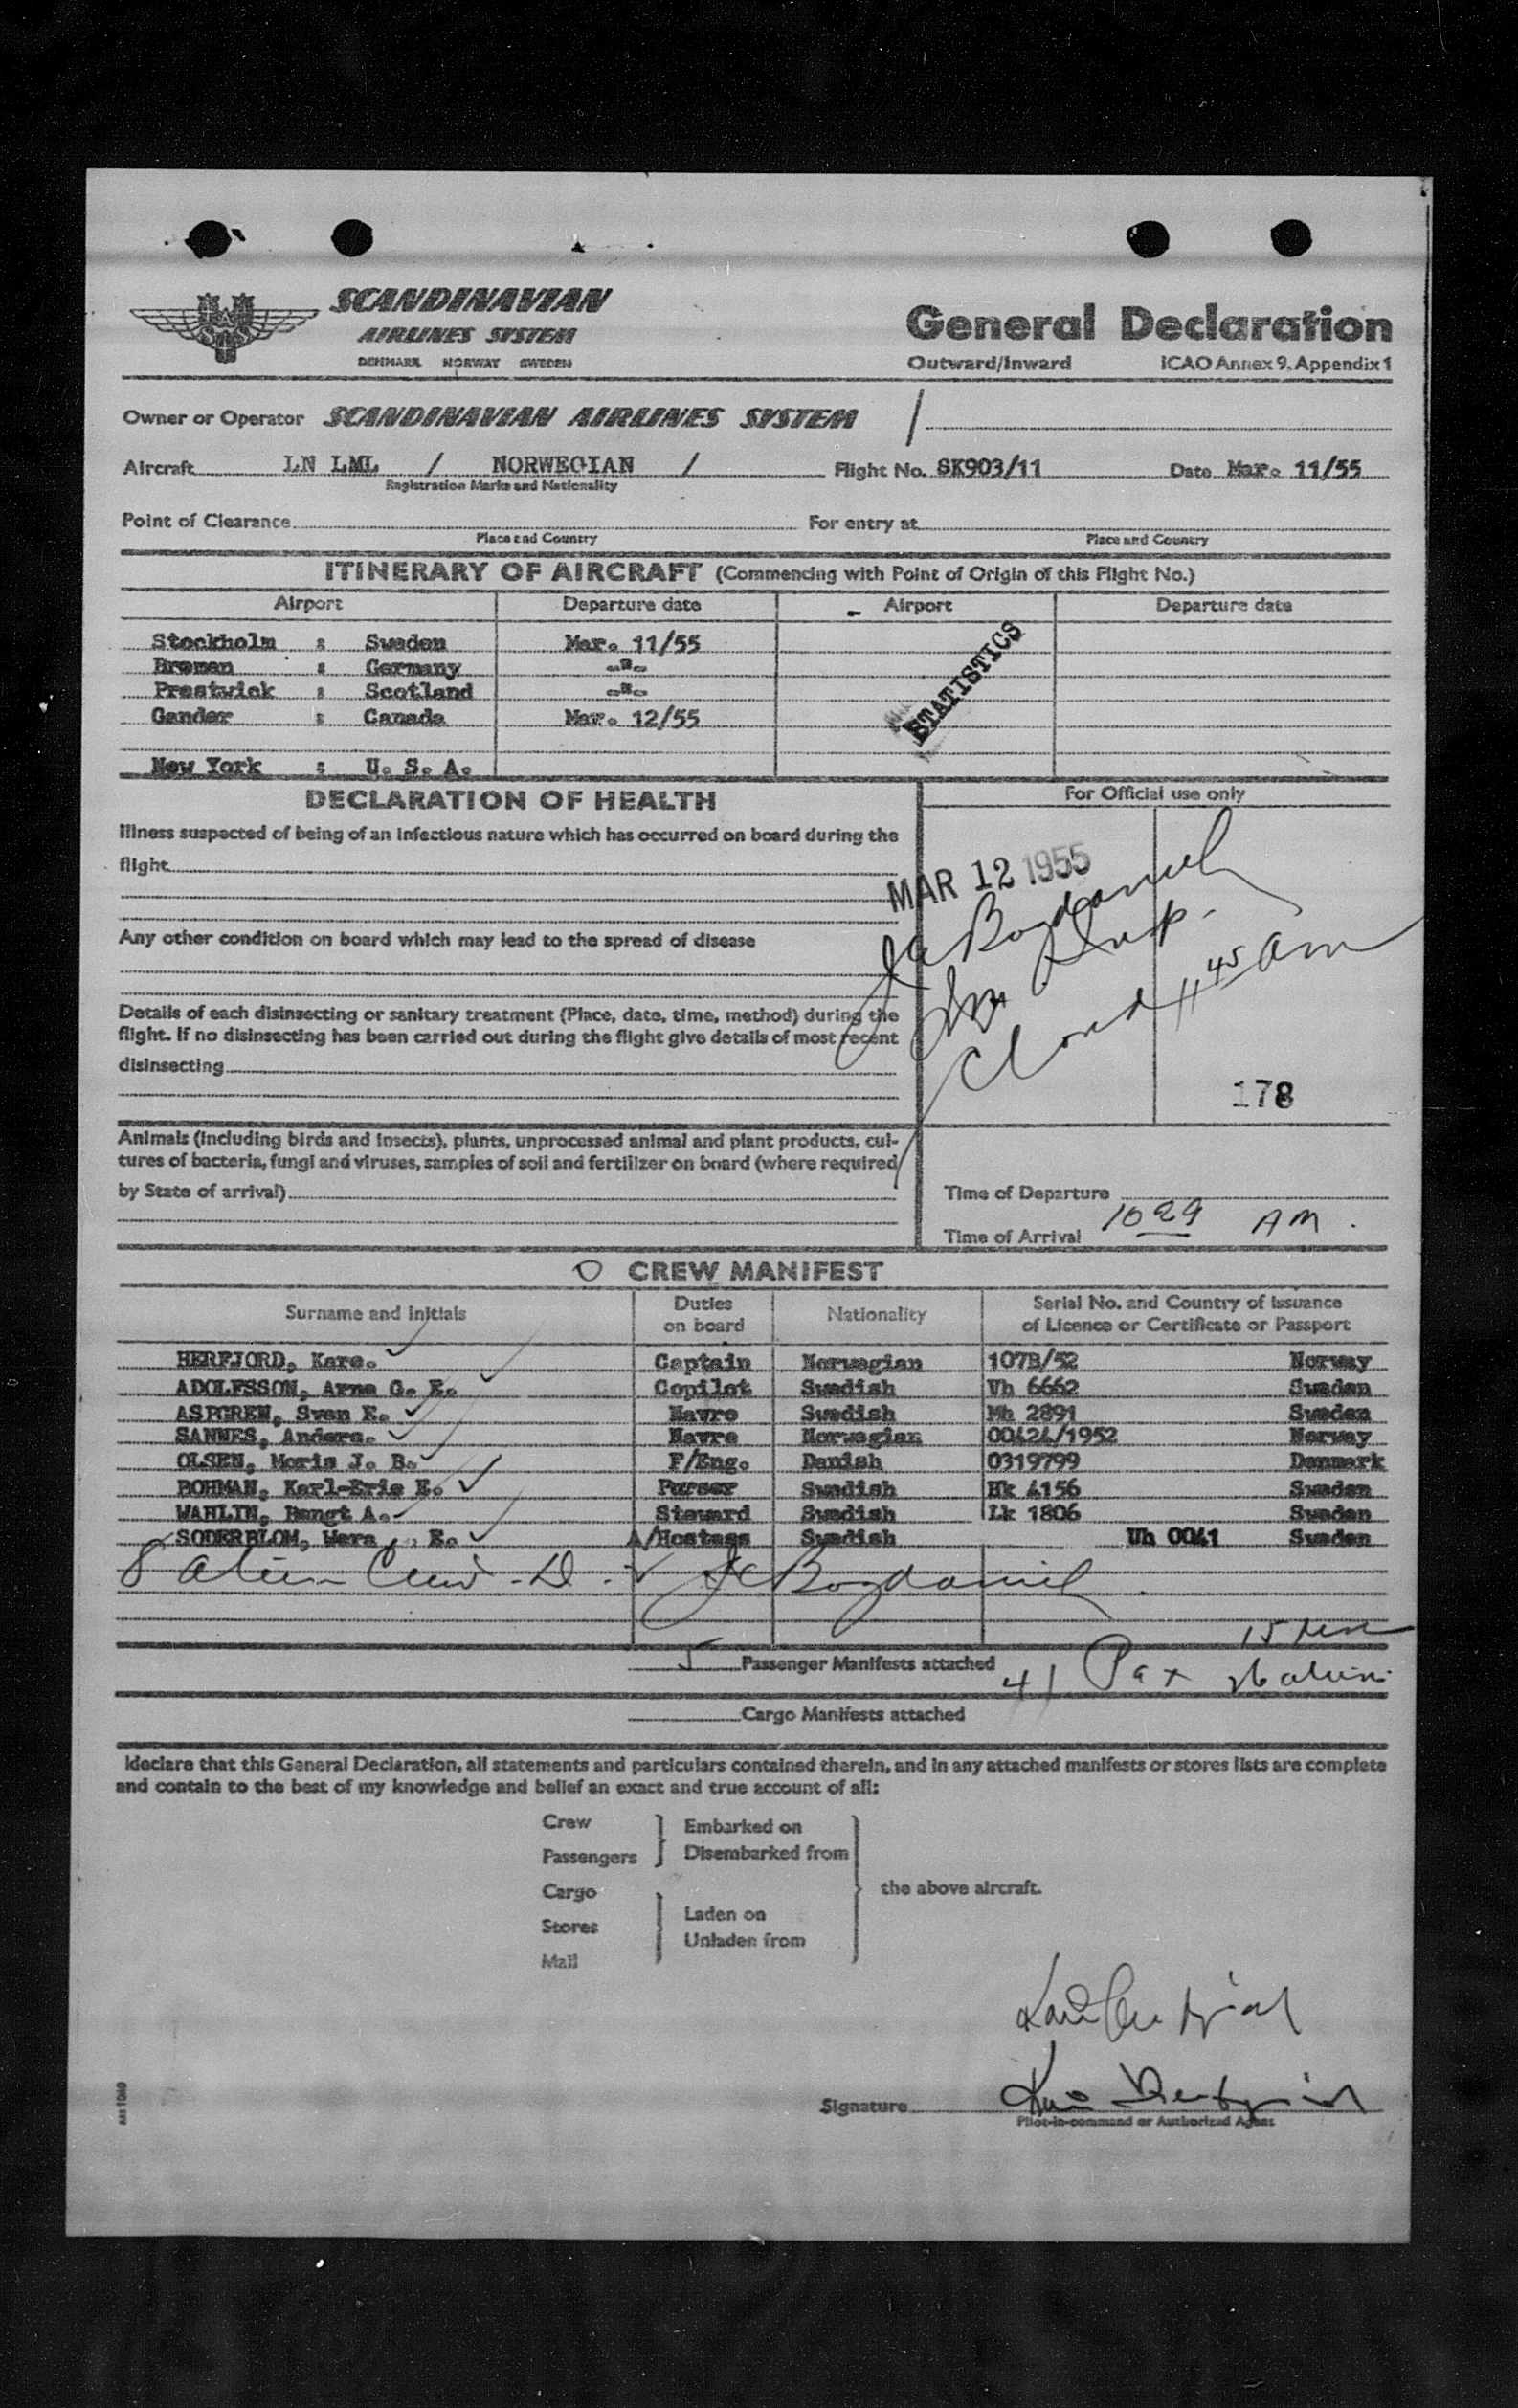 SCANDINAVIAN
AIRLINES SYSTEM
DENMARK NORWAY SWEDEN
General Declaration
Outward/Inward ICAO Annex 9, Appendix 1
Owner or Operator SCANDINAVIAN AIRLINES SYSTEM /
Aircraft LN LML / NORWEGIAN / Flight No. SK903/11 Date Mar. 11/55
Registration Marks and Nationality
Point of Clearance For entry at
Place and Country Place and Country
ITINERARY OF AIRCRAFT (Commencing with Point of Origin of this Flight No.)
Airport Departure date Airport Departure date
Stockholm : Sweden Mar. 11/55
Bremen : Germany -"-
Prestwick : Scotland -"-
Gander : Canada Mar. 12/55
New York : U. S. A.
STATISTICS
DECLARATION OF HEALTH
For Official use only
Illness suspected of being of an infectious nature which has occurred on board during the
flight
MAR 12 1955
Any other condition on board which may lead to the spread of disease
Insp.
Details of each disinsecting or sanitary treatment (Place, date, time, method) during the
flight. If no disinsecting has been carried out during the flight give details of most recent
disinsecting
11 45 am
178
Animals (including birds and insects), plants, unprocessed animal and plant products, cul-
tures of bacteria, fungi and viruses, samples of soil and fertilizer on board (where required
by State of arrival)
Time of Departure
Time of Arrival 10 29 AM.
CREW MANIFEST
Surname and Initials Duties on board Nationality Serial No. and Country of Issuance of Licence or Certificate or Passport
HERFJORD, Kare. Captain Norwegian 107B/52 Norway
ADOLFSSON, Arne G. E. Copilot Swedish Vh 6662 Sweden
ASPGREN, Sven E. Navro Swedish Mh 2891 Sweden
SANNES, Anders. Navro Norwegian 00424/1952 Norway
OLSEN, Moris J. B. F/Eng. Danish 0319799 Denmark
BOHMAN, Karl-Eric E. Purser Swedish Hk 4156 Sweden
WAHLIN, Bengt A. Steward Swedish Lk 1806 Sweden
SODERBLOM, Wera E. A/Hostess Swedish Uh 0041 Sweden
8 alien Crew - D.
5 Passenger Manifests attached
41 Pax
Cargo Manifests attached
I declare that this General Declaration, all statements and particulars contained therein, and in any attached manifests or stores lists are complete
and contain to the best of my knowledge and belief an exact and true account of all:
Crew
Passengers
Embarked on
Disembarked from
Cargo
Stores
Mail
Laden on
Unladen from
the above aircraft.
Signature
Pilot-in-command or Authorized Agent